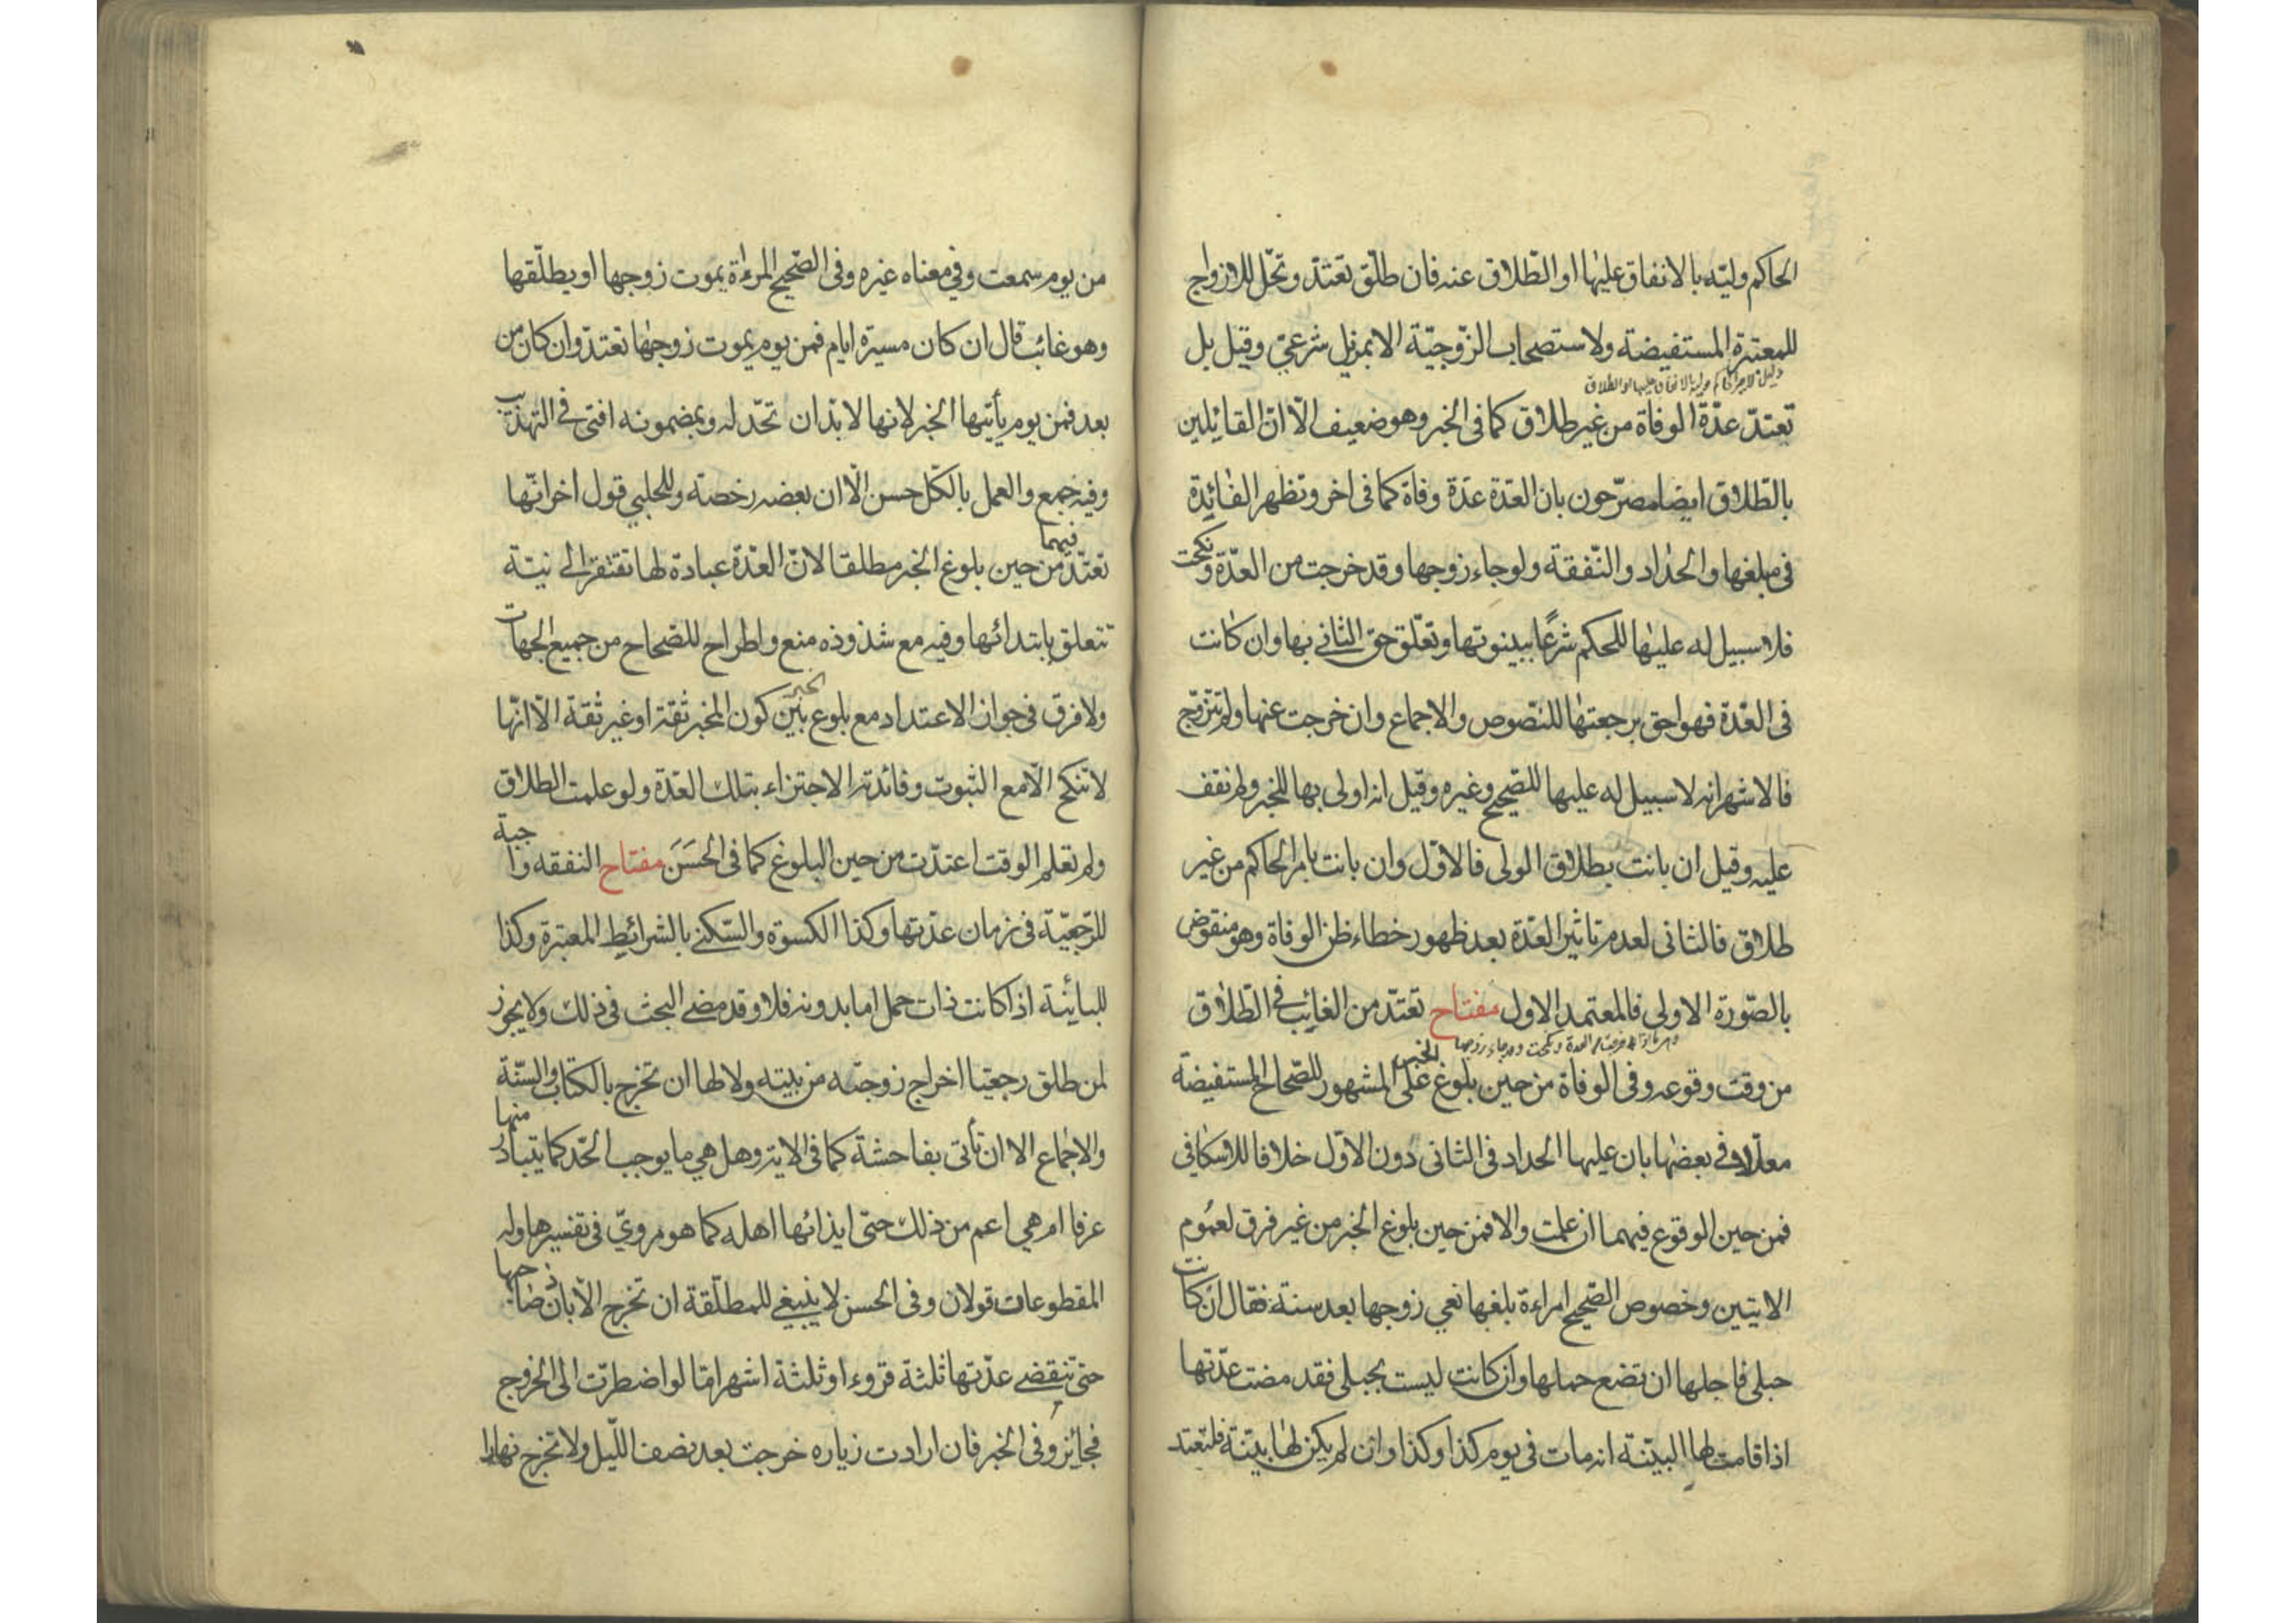 الحاكم وليّه بالانفاق عليها او الطّلاق عنه فان طلّق تعتدّ وتحّل للازواج
للمعتبرة المستفيضة ولاستصحاب الزّوجيّة الا بمزيل شرعيّ وقيل بل
تعتدّ عدّة الوفاة من غير طلاق كما فى الخبر وهو ضعيف الّا انّ القائيلين
بالطّلاق ايضا مصرّحون بان العدّة عدّة وفاة كما فى اخر وتظهر الفائِدة
فى مبلغها والحداد والنّفقة ولو جاء زوجها وقد خرجت من العدّة ونكحت
فلا سبيل له عليها للحكم شرعًا ببينونتها وتعلّق حق الثانى بها وان كانت
فى العدّة فهو احق برجعتها للنّصوص والاجماع وان خرجت عنها ولم تتزوّج
فالاشهر انه لا سبيل له عليها للصّحيح وغيره وقيل انه اولى بها للخبر ولم نقف
عليه وقيل ان بانت بطلاق الولى فالاوّل وان بانت بامر الحاكم من غير
طلاق فالثانى لعدم تاثير العدّة بعد ظهور خطاء ظن الوفاة وهو منقوض
بالصّورة الاولى فالمعتمد الاول مفتاح تعتدّ من الغائِب فى الطّلاق
من وقت وقوعه وفى الوفاة من حين بلوغ الخبر على المشهور للصّحاح المستفيضة
معلّلا فى بعضها بان عليها الحداد فى الثانى دون الاوّل خلافا للاسكافى
فمن حين الوقوع فيهما ان علمت والا فمن حين بلوغ الخبر من غير فرق لعموم
الايتين وخصوص الصّحيح امراءة بلغها نعي زوجها بعد سنة فقال ان كانت
حبلى فاجلها ان تضع حملها وان كانت ليست بحبلى فقد مضت عدّتها
اذا قامت لها البيّنة انه مات فى يوم كذا وكذا وان لم يكن لها بيّنة فلتعتد
من يوم سمعت وفى معناه غيره وفى الصّحيح المرءاة يموت زوجها او يطلّقها
وهو غائب قال ان كان مسيرة ايام فمن يوم يموت زوجها تعتدّ وان كان من
بعد فمن يوم يأتيها الخبر لانها لا بدّ ان تحّد له وبمضمونه افتى فى التهذيب
وفيه جمع والعمل بالكّل حسن الّا ان بعضه رخصة وللحلبي قول اخر انّها
تعتدّ فيهما من حين بلوغ الخبر مطلقا لانّ العدّة عبادة لها تفتقر الى نيّة
تتعلق بابتدائها وفيه مع شذوذه منع واطراح للصّحاح من جميع الجهات
ولا فرق فى جواز الاعتداد مع بلوغ الخبر بين كون المخبر ثقة او غير ثقة الّا انّها
لا تنكح الّا مع الثبوت وفائدته الاجتزاء بتلك العدّة ولو علمت الطلاق
ولم تعلم الوقت اعتدّت من حين البلوغ كما فى الحسَن مفتاح النفقه واجبة
للرّجعيّة فى زمان عدّتها وكذا الكسوة والسّكنى بالشرائِط المعتبرة وكذا
للبائِنة اذا كانت ذات حمل اما بدونه فلا وقد مضى البحث فى ذلك ولا يجوز
لمن طلق رجعيّا اخراج زوجته من بيته ولا لها ان تخرج بالكتاب والسّنّة
والاجماع الا ان تأتى بفاحشة كما فى الاية وهل هي ما يوجب الحّد كما يتبادر منها
عرفا ام هي اعم من ذلك حتّى ايذائها اهله كما هو مرويّ فى تفسيرها وله
المقطوعات قولان وفى الحسن لا ينبغى للمطلّقة ان تخرج الّا باذن زوجها
حتّى تنقضى عدّتها ثلثة قروء او ثلثة اشهر امّا لو اضطرّت الى الخروج
فجائِز وفى الخبر فان ارادت زياره خرجت بعد نصف اللّيل ولا تخرج نهارا